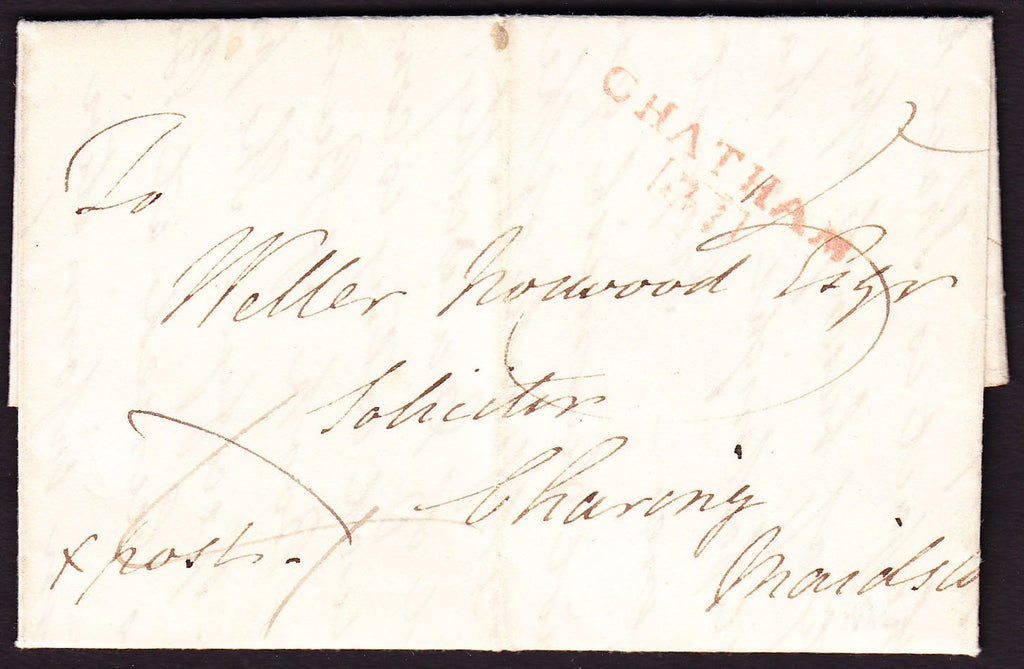 CHATHAM
To
Weller Norwood Esqr
Solicitor
Charing
x post.
Maids